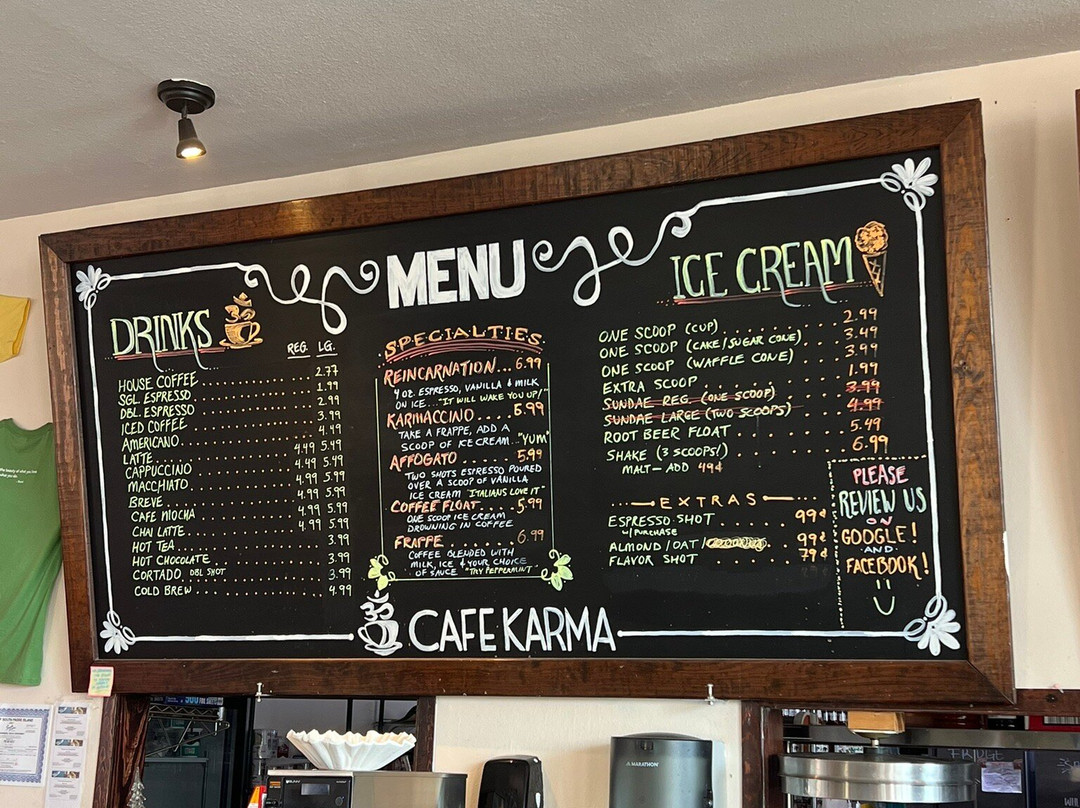 MENU
DRINKS
REG. LG.
HOUSE COFFEE 2.77
SGL ESPRESSO 1.99
DBL ESPRESSO 2.99
ICED COFFEE 3.99
AMERICANO 4.49
LATTE 4.49 5.49
CAPPUCCINO 4.49 5.49
MACCHIATO 4.99 5.99
BREVE 4.99 5.99
CAFE MOCHA 4.99 5.99
CHAI LATTE 4.99 5.99
HOT TEA 3.99
HOT CHOCOLATE 3.99
CORTADO DBL SHOT 3.99
COLD BREW 4.99
SPECIALTIES
REINCARNATION... 6.99
4 OZ. ESPRESSO, VANILLA & MILK
ON ICE..."IT WILL WAKE YOU UP!"
KARMACCINO.... 5.99
TAKE A FRAPPE, ADD A
SCOOP OF ICE CREAM.. "YUM"
AFFOGATO 5.99
TWO SHOTS ESPRESSO POURED
OVER A SCOOP OF VANILLA
ICE CREAM "ITALIANS LOVE IT"
COFFEE FLOAT 5.99
ONE SCOOP ICE CREAM
DROWNING IN COFFEE
FRAPPE 6.99
COFFEE BLENDED WITH
MILK, ICE & YOUR CHOICE
OF SAUCE "TRY PEPPERMINT"
ICE CREAM
ONE SCOOP (CUP) 2.99
ONE SCOOP (CAKE/SUGAR CONE) 3.49
ONE SCOOP (WAFFLE CONE) 3.99
EXTRA SCOOP 1.99
SUNDAE REG. (ONE SCOOP) 3.99
SUNDAE LARGE (TWO SCOOPS) 4.99
ROOT BEER FLOAT 5.49
SHAKE (3 SCOOPS!) 6.99
MALT-ADD 49¢
EXTRAS
ESPRESSO SHOT 99¢
W/PURCHASE
ALMOND/OAT/ 99¢
FLAVOR SHOT 79¢
PLEASE
REVIEW US
ON
GOOGLE!
-AND-
FACEBOOK!
CAFE KARMA
BUNN
MARATHON